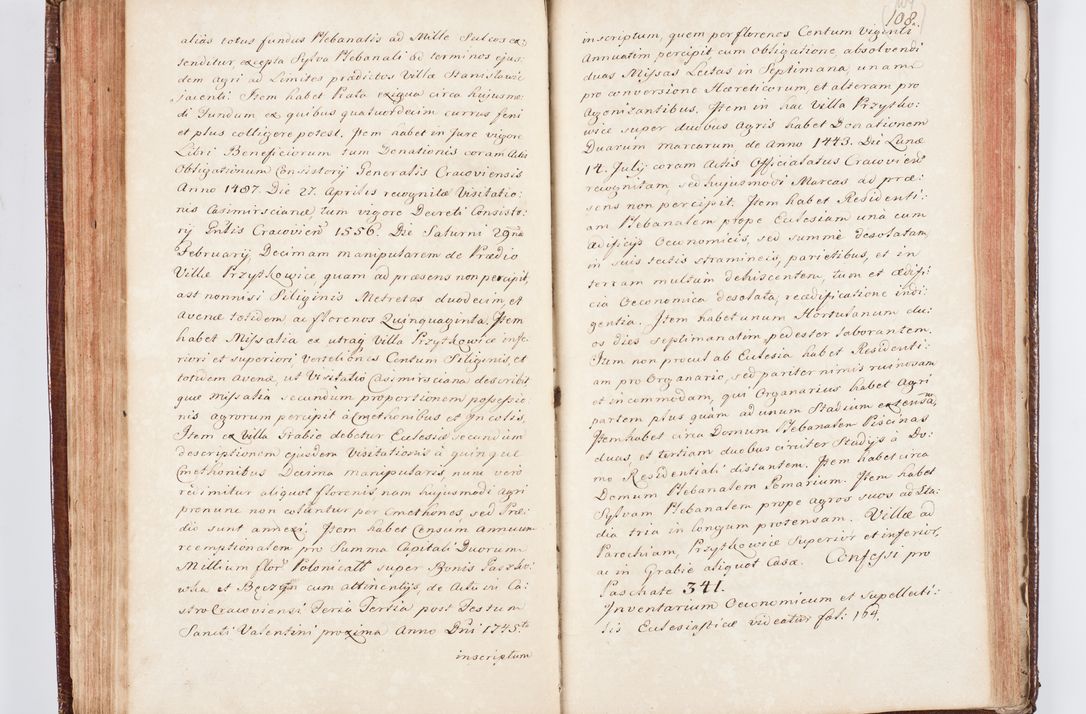 alias totus fundus Plebanalis ad Mille Sulcos ex:
tenditur, excepta Sylva Plebanali ad terminos ejus:
dem agri ad Limites prædictos Villæ Stanisławie
jacenti. Item habet Prata exigua circa hujusmo:
di Fundum ex quibus quatuordecim currus feni
et plus colligere potest. Item habet in Jure vigore
Libri Beneficiorum tum Donationis coram Actis
Obligationum Consistorij Generalis Cracoviensis
Anno 1487. Die 27. Aprilis recognitæ Visitatio:
nis Casimirscianæ, tum vigore Decreti Consisto:
rij Gnlis Cracovien 1556. Die Saturni 29na
February, Decimam manipularem de Prædio
Villæ Przytkowice, quam ad præsens non percipit,
ast nonnisi Siliginis Metretas duodecim, et
Avenæ totidem ac florenos Quinquaginta. Item
habet Missalia ex utraq Villa Przytkowice infe:
riori et superiori, vertelionis Centum Siliginis et
totidem Avenæ, ut Visitatio Casimirsciana describit
quæ missalia secundum proportionem possessio:
nis agrorum percipit à Cmethonibus et Incolis.
Item ex Villa Grabie debetur Ecclesiæ secundum
descriptionem ejusdem Visitationis à quinque
Cmethonibus Decima manipularis, nunc vero
redimitur aliquot florenis, nam hujusmodi Agri
pronunc non coluntur per Cmethones, sed Præ:
dio sunt annexi. Item habet Censum Annuum
reemptionalem pro Summa Capitali Duorum
Millium flor Polonicall super Bonis Paszko:
wka et Bęczyn cum attinentijs, de Actu in Ca:
stro Cracoviensi Feria Tertia post Festum
Sancti Valentini proxima Anno Dni 1745.to
inscriptum
108.
inscriptum, quem per florenos Centum viginti
Annuatim percipit cum Obligatione absolvendi
duas Missas Lectas in Septimana, unam
pro conversione Hæreticorum, et alteram pro
Agonizantibus. Item in hac Villa Przytko:
wice super duobus Agris habet Donationem
Duarum marcarum de Anno 1443. Die Lunæ
14. July coram Actis Officialatus Cracovien
recognitam, sed hujusmodi Marcas ad præ:
sens non percipit. Item habet Residenti:
am Plebanalem prope Ecclesiam unà cum
Ædificijs Oeconomicis, sed summè desolatam,
in suis tectis stramineis, parietibus, et in
terram multùm dehiscentem, tum et Ædifi:
cia Oeconomica desolata, reædificatione indi:
gentia. Item habet unum Hortulanum du:
os dies septimanatim pedester laborantem.
Item non procul ab Ecclesia habet Residenti:
am pro Organario, sed pariter nimis ruinosam
et incommodam, qui Organarius habet Agri
partem plus quàm ad unum Stadium extensam,
Item habet circa Domum Plebanalem Piscinas
duas, et tertiam duobus circiter Stadijs à Do:
mo Residentiali distantem. Item habet circa
Domum Plebanalem Pomarium. Item habet
Sylvam Plebanalem prope Agros suos ad Sta:
dia tria in longum protensam. Villæ ad
Parochiam, Przytkowice Superior et inferior,
ac in Grabie aliquot Casæ. Confessi pro
Paschate 341.
Inventarium Oeconomicum et Supellecti:
lis Ecclesiasticæ videatur fol: 164.